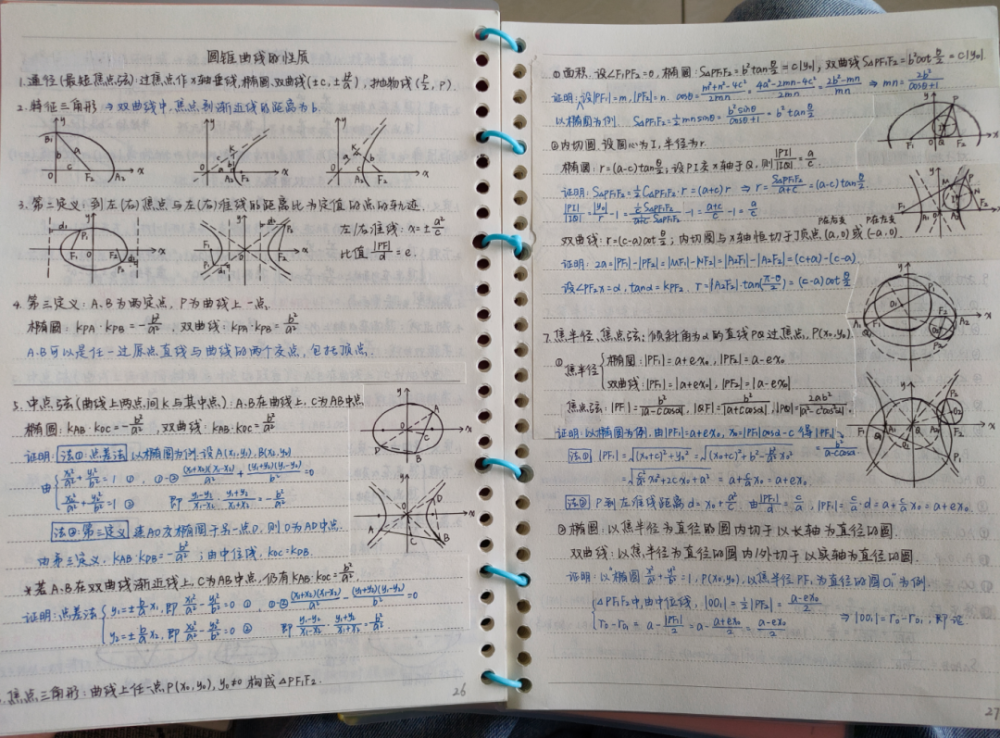 圆锥曲线的性质
1.通径(最短焦点弦):过焦点作x轴垂线,椭圆、双曲线(±c,±b²/a),抛物线(p/2,p).
2.特征三角形 ⇒ 双曲线中,焦点到渐近线的距离为b.
3.第二定义:到左(右)焦点与左(右)准线的距离比为定值的点的轨迹.
左/右准线:x=±a²/c
比值|PF₁|/d=e.
4.第三定义:A、B为两定点,P为曲线上一点.
椭圆:kPA·kPB=-b²/a²,双曲线:kPA·kPB=b²/a².
A、B可以是任一过原点直线与曲线的两个交点,包括顶点.
5.中点弦(曲线上两点间k与其中点):A、B在曲线上,C为AB中点
椭圆:kAB·kOC=-b²/a²,双曲线:kAB·kOC=b²/a².
证明:法①:点差法 以椭圆为例.设A(x₁,y₁),B(x₂,y₂)
由{x₁²/a²+y₁²/b²=1 ① ①-② (x₁+x₂)(x₁-x₂)/a²+(y₁+y₂)(y₁-y₂)/b²=0
x₂²/a²+y₂²/b²=1 ② 即 y₁-y₂/x₁-x₂·y₁+y₂/x₁+x₂=-b²/a²
法②:第三定义 延AO交椭圆于另一点D,则O为AD中点.
由第三定义,kAB·kDB=-b²/a²;由中位线,kOC=kDB.
*若A、B在双曲线渐近线上,C为AB中点,仍有kAB·kOC=b²/a².
证明:点差法{y₁=±b/a x₁,即 x₁²/a²-y₁²/b²=0 ① ①-② (x₁+x₂)(x₁-x₂)/a²-(y₁+y₂)(y₁-y₂)/b²=0
y₂=±b/a x₂,即 x₂²/a²-y₂²/b²=0 ② 即 y₁-y₂/x₁-x₂·y₁+y₂/x₁+x₂=b²/a²
焦点三角形:曲线上任一点P(x₀,y₀),y₀≠0 构成△PF₁F₂.
26
①面积.设∠F₁PF₂=θ,椭圆:S△PF₁F₂=b²tanθ/2=c|y₀|,双曲线S△PF₁F₂=b²cotθ/2=c|y₀|.
证明:设|PF₁|=m,|PF₂|=n. cosθ=m²+n²-4c²/2mn=4a²-2mn-4c²/2mn=2b²-mn/mn ⇒ mn=2b²/cosθ+1
以椭圆为例. S△PF₁F₂=½mnsinθ=b²sinθ/cosθ+1=b²tanθ/2
②内切圆.设圆心为I,半径为r.
椭圆:r=(a-c)tanθ/2;设PI交x轴于Q,则|PI|/|IQ|=a/c.
证明:S△PF₁F₂=½C△PF₁F₂·r=(a+c)r ⇒ r=S△PF₁F₂/a+c=(a-c)tanθ/2
|PI|/|IQ|=|y₀|/r-1=a+c/c-1=a/c
P在右支 P在左支
双曲线:r=(c-a)cotθ/2;内切圆与x轴恒切于顶点(a,0)或(-a,0).
证明:2a=|PF₁|-|PF₂|=|MF₁|-|NF₂|=|A₂F₁|-|A₂F₂|=(c+a)-(c-a).
设∠PF₂x=α,tanα=kPF₂.
7.焦半径、焦点弦:倾斜角为α的直线PQ过焦点,P(x₀,y₀).
①焦半径{椭圆:|PF₁|=a+ex₀,|PF₂|=a-ex₀
双曲线:|PF₁|=|a+ex₀|,|PF₂|=|a-ex₀|
焦点弦:|PF|=b²/|a-ccosα|,|QF|=b²/|a+ccosα|,|PQ|=2ab²/|a²-c²cos²α|.
证明:以椭圆为例.由|PF₁|=a+ex₀,x₀=|PF₁|cosα-c 得|PF₁|=b²/a-ccosα
法① |PF₁|=√(x₀+c)²+y₀²=√(x₀+c)²+b²-b²/a²x₀²
=√c²/a²x₀²+2cx₀+a²=a+c/a x₀=a+ex₀.
法② P到左准线距离d=x₀+a²/c.由|PF₁|/d=c/a,|PF₁|=c/a·d=a+c/a x₀=a+ex₀.
②椭圆:以焦半径为直径的圆内切于以长轴为直径的圆.
双曲线:以焦半径为直径的圆内/外切于以实轴为直径的圆.
证明:以椭圆x²/a²+y²/b²=1,P(x₀,y₀),以焦半径PF₁为直径的圆O₁为例.
{△PF₁F₂中,由中位线,|OO₁|=½|PF₂|=a-ex₀/2
r₀-r₀₁=a-|PF₁|/2=a-a+ex₀/2=a-ex₀/2 ⇒|OO₁|=r₀-r₀₁,即证
27